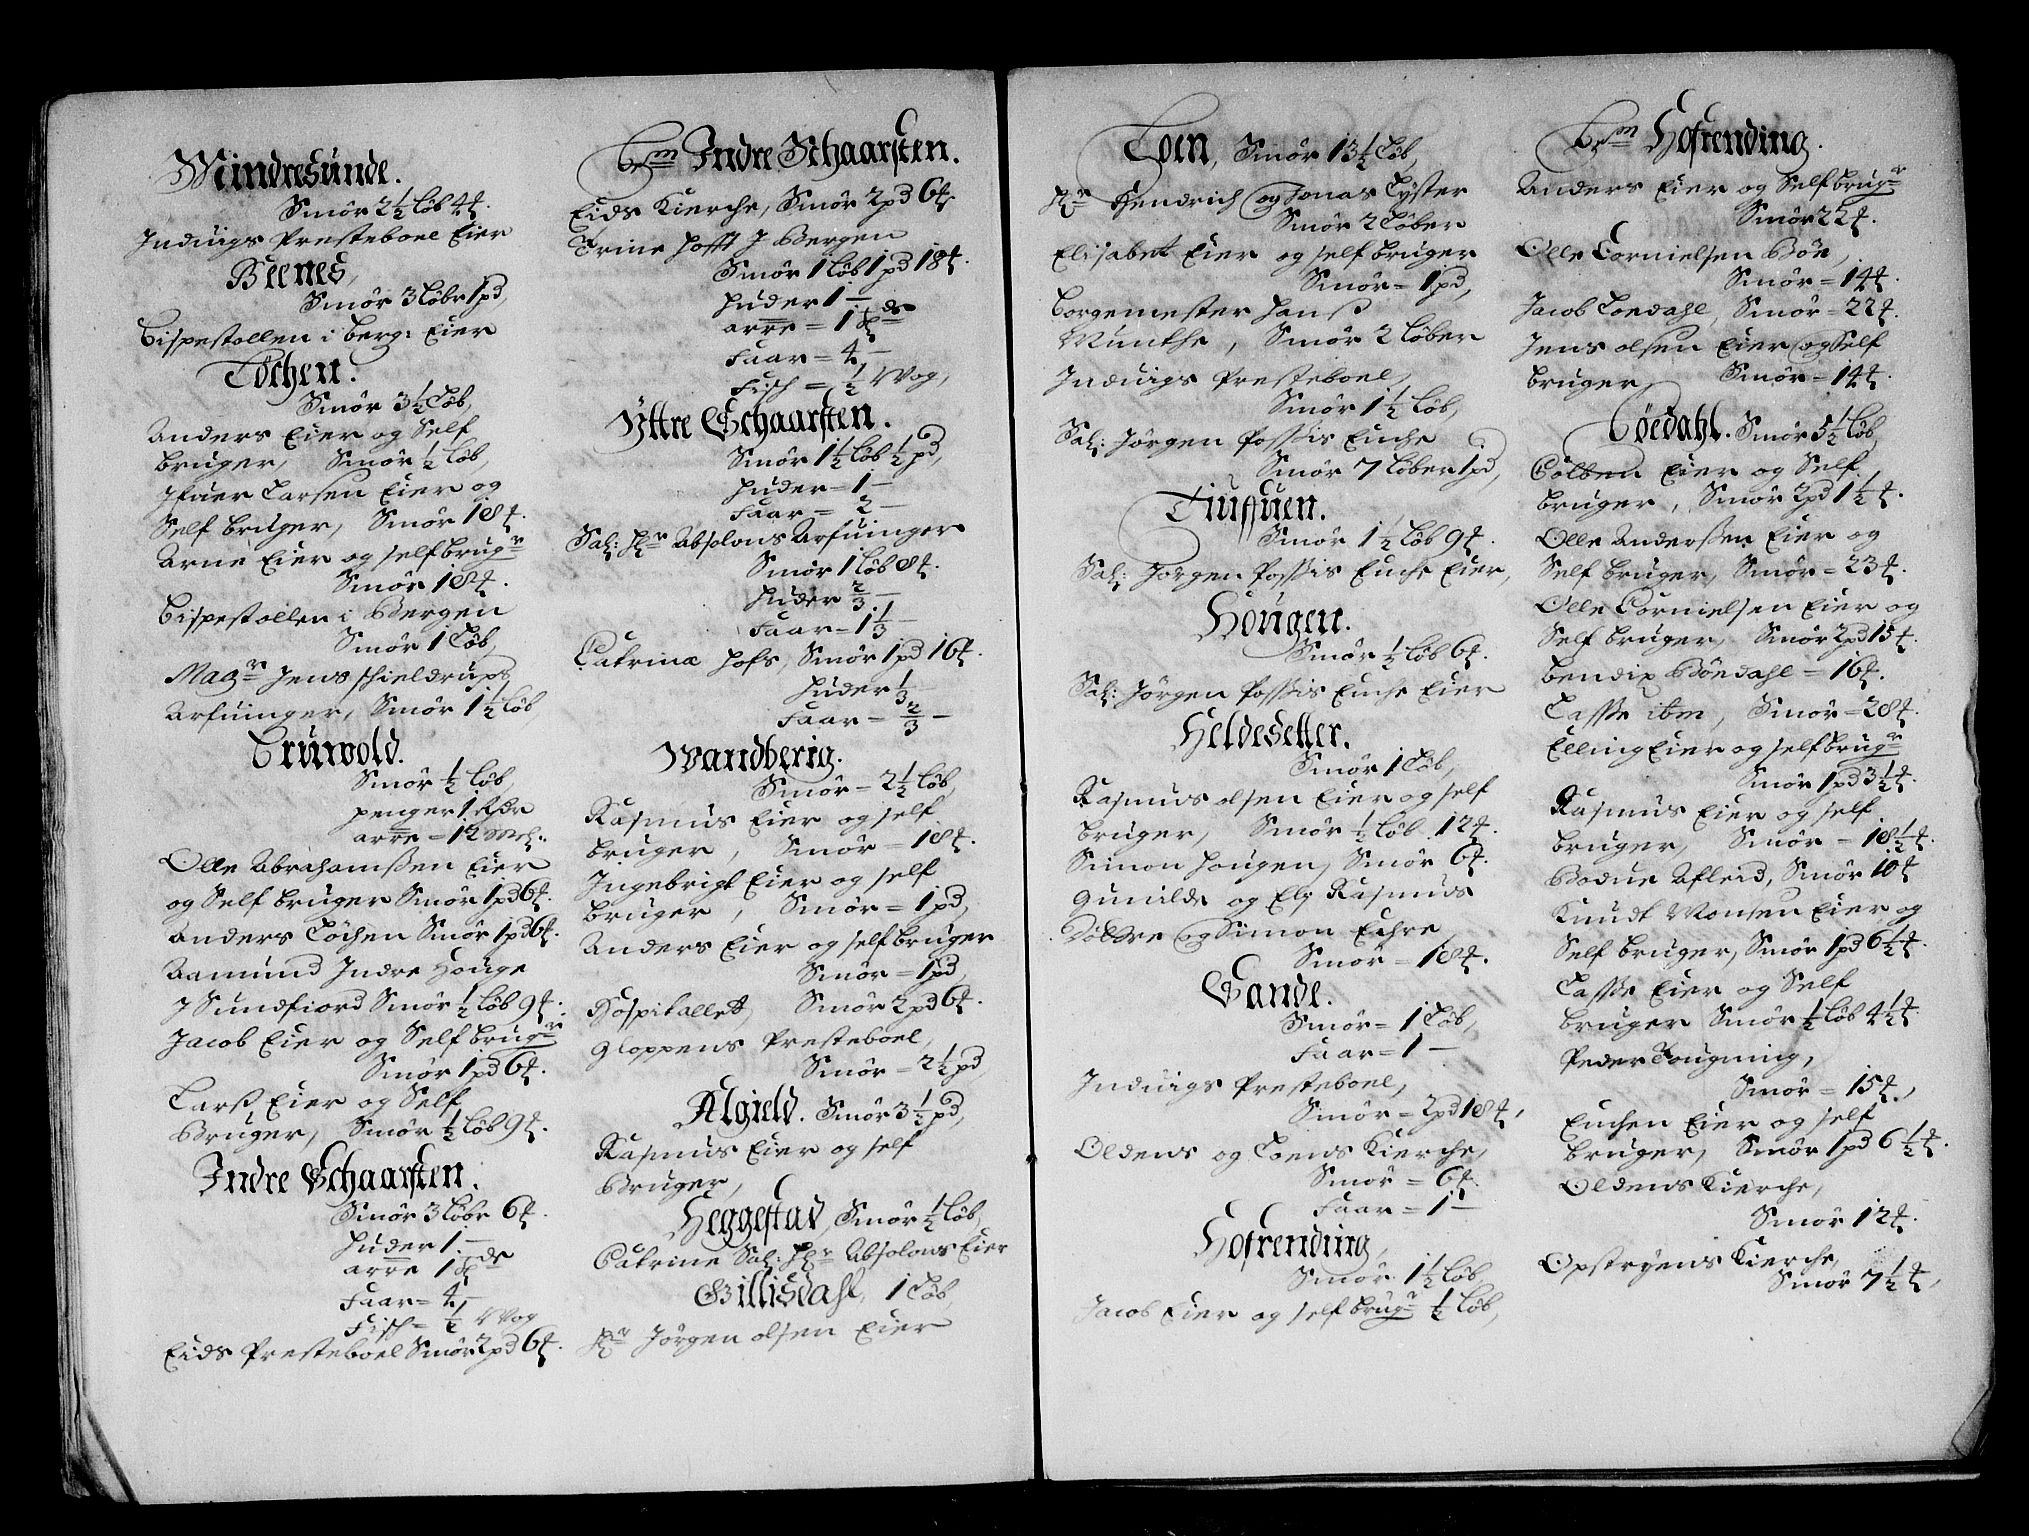 Mindresunde.
Smör 2½ Löb 4 ℔.
Induigs Presteboel Eier
Beenes,
Smör 3 Löbr 1 pd,
Bispestollen i berg: Eier
Löchen.
Smör 3½ Löb,
Anders Eier og Self
bruger, Smör ½ Löb,
Ifuer Larsen Eier og
Self bruger, Smör 18 ℔.
Arne Eier og selfbrugr
Smör 18 ℔.
Bispestollen i Bergen
Smör 1 Löb,
Magr Jens schieldrups
Arfuinger, Smör 1½ Löb
Smör ½ Löb,
penger 1 Rdr
arre = 12 mrk:
Olle Abrahamßen Eier
og Self bruger Smör 1 pd 6 ℔.
Anders Löchen Smör 1 pd 6 ℔.
Aamund Indre Houge
J Sundfiord Smör ½ Löb 9 ℔.
Jacob Eier og Self brugr
Smör 1 pd 6 ℔.
Larß Eier og Self
Bruger, Smör ½ Löb 9 ℔.
Indre Schaarsten.
Smör 3 Löbr 6 ℔.
Huder 1 —
arre 1
Faar = 4 —
Fisch = ½ Wog
Eids Presteboel Smör 2 pd 6 ℔.
Indre Schaarsten.
Eids Kierche, Smör 2 pd 6 ℔.
Trine Hofft J Bergen
Smör 1 Löb 1 pd 18 ℔.
Huder 1 —
arre = 1
Faar = 4 —
Fisch = ½ Wog,
Yttre Schaarsten.
Smör 1½ Löb ½ pd,
Huder = 1 —
Faar = 2 —
Sal: Hr Absolons Arfuinger
Smör 1 Löb 8 ℔.
Huder ⅔ —
Faar = 1⅓ —
Catrina Hofs, Smör 1 pd 16 ℔.
Huder ⅓ —
Faar = ⅔ —
Wandberig.
Smör = 2½ Löb,
Rasmus Eier og self
bruger, Smör = 18 ℔.
Ingebrigt Eier og self
bruger, Smör = 1 pd,
Anders Eier og selfbruger
Smör = 1 pd,
Hospitallet, Smör 2 pd 6 ℔.
Gloppens Presteboel,
Smör = 2½ pd,
Algield. Smör 3½ pd,
Rasmus Eier og self
Bruger,
Heggestad, Smör ½ Löb,
Catrine Sal: Hr Absolons Eier
Gillisdahl, 1 Löb,
Hr Jörgen olsen Eier
Loen, Smör 13½ Löb,
Hr Hendrich og Jonas Lyster
Smör 2 Löber
Elisabet Eier og selfbruger
Smör = 1 pd,
Borgemester Hanß
Munthe, Smör 2 Löber
Induigs Presteboel,
Smör 1½ Löb,
Sal: Jörgen Possis Enche
Smör 7 Löber 1 pd,
Tiufuen.
Smör 1½ Löb 9 ℔.
Sal: Jörgen Possis Enche Eier,
Hougen.
Smör ½ Löb 6 ℔.
Sal: Jörgen Possis Enche Eier
Heldesetter.
Smör 1 Löb,
Rasmus olsen Eier og self
bruger, Smör ½ Löb 12 ℔.
Simon Hougen, Smör 6 ℔.
Gunilde og Elg Rasmus
og Simon
Smör = 18 ℔.
Sande.
Smör = 1 Löb,
Faar = 1 —
Induigs Presteboel,
Smör = 2 pd 18 ℔,
Oldens og Loens Kierche,
Smör = 6 ℔.
Faar = 1 —
Hofrending,
Smör 1½ Löb
Jacob Eier og selfbrugr ½ Löb,
Hofrending.
Anders Eier og Selfbrugr
Smör 22 ℔.
Olle Cornielsen Böe,
Smör = 14 ℔.
Jacob Loedahl, Smör = 22 ℔.
Jens olsen Eier og Self
bruger, Smör = 14 ℔.
Löedahl. Smör 5½ Löb,
Colben Eier og Self
bruger, Smör 2 pd 1½ ℔.
Olle Anderßen Eier og
Self bruger, Smör = 23 ℔.
Olle Cornielsen Eier og
Self bruger, Smör 2 pd 15 ℔.
bendix Böedahl = 16 ℔.
Lasse ibm, Smör = 28 ℔.
Elling Eier og selfbrugr
Smör 1 pd 3½ ℔.
Rasmus Eier og self
bruger, Smör = 18½ ℔.
Bodue Afleid, Smör 10 ℔
Knudt Monsen Eier og
Self bruger, Smör 1 pd 6½ ℔.
Lasse Eier og Self
bruger Smör ½ Löb 4½ ℔.
Peder Lougming,
Smör = 15 ℔,
Enchen Eier og self
bruger, Smör 1 pd 6½ ℔.
Oldens Kierche,
Smör 12 ℔.
Opstryens Kierche,
Smör 7½ ℔,